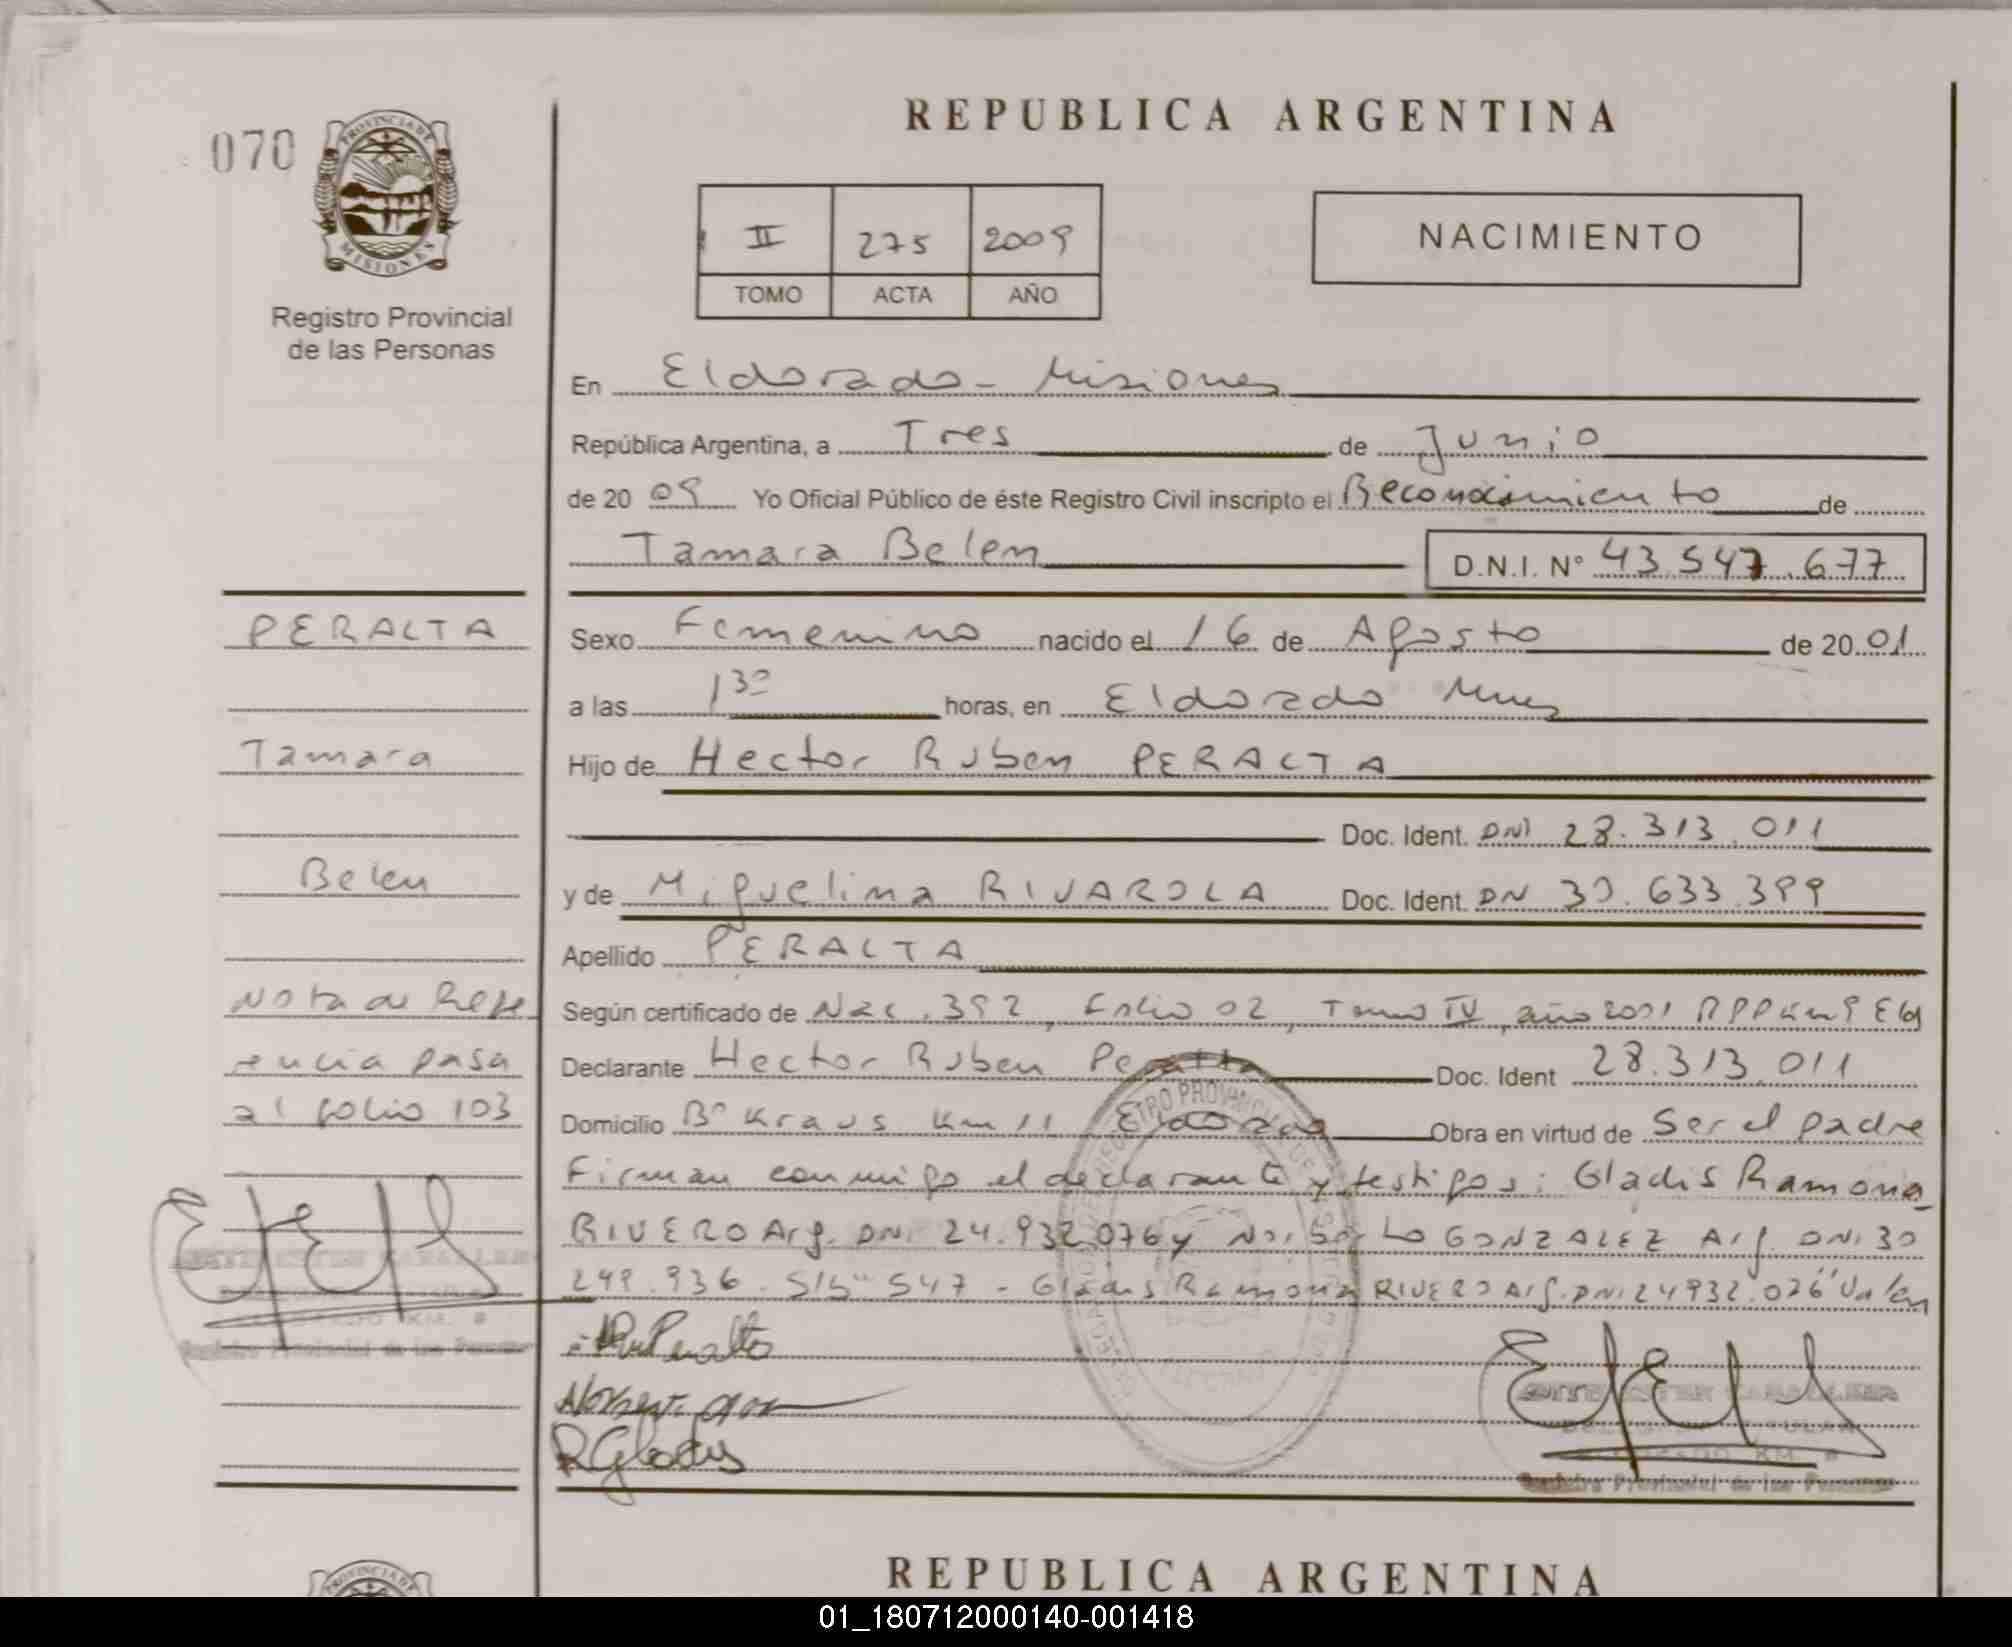 070
PROVINCIA DE
MISIONES
Registro Provincial
de las Personas
REPUBLICA ARGENTINA
II 275 2009
TOMO ACTA AÑO
NACIMIENTO
En Eldorado - Misiones
República Argentina, a Tres de Junio
de 2009 Yo Oficial Público de éste Registro Civil inscripto el Reconocimiento de
Tamara Belen D.N.I. Nº 43.547.677
Sexo Femenino nacido el 16 de Agosto de 2001
a las 1 30 horas, en Eldorado Mnes
Hijo de Hector Ruben PERALTA
Doc. Ident. DNI 28.313.011
y de Miguelina RIVAROLA Doc. Ident. DN 30.633.399
Apellido PERALTA
Según certificado de Nac. 392, Folio 02, Tomo IV, año 2001 RPP km 9 Eld
Declarante Hector Ruben Peralta Doc. Ident 28.313.011
Domicilio Bº Kraus Km 11 Eldorado Obra en virtud de Ser el padre
Firman conmigo el declarante y testigos: Gladis Ramona
RIVERO Arg. DNI 24.932.076 y GONZALEZ Arg. DNI 30
249.936. S/b 547 - Gladis Ramona RIVERO Arg. DNI 24932.076 Valen
PERALTA
Tamara
Belen
Nota de Refe
rencia pasa
al folio 103
Registro Provincial de las Personas
Registro Provincial de las Personas
REPUBLICA ARGENTINA
01_180712000140-001418